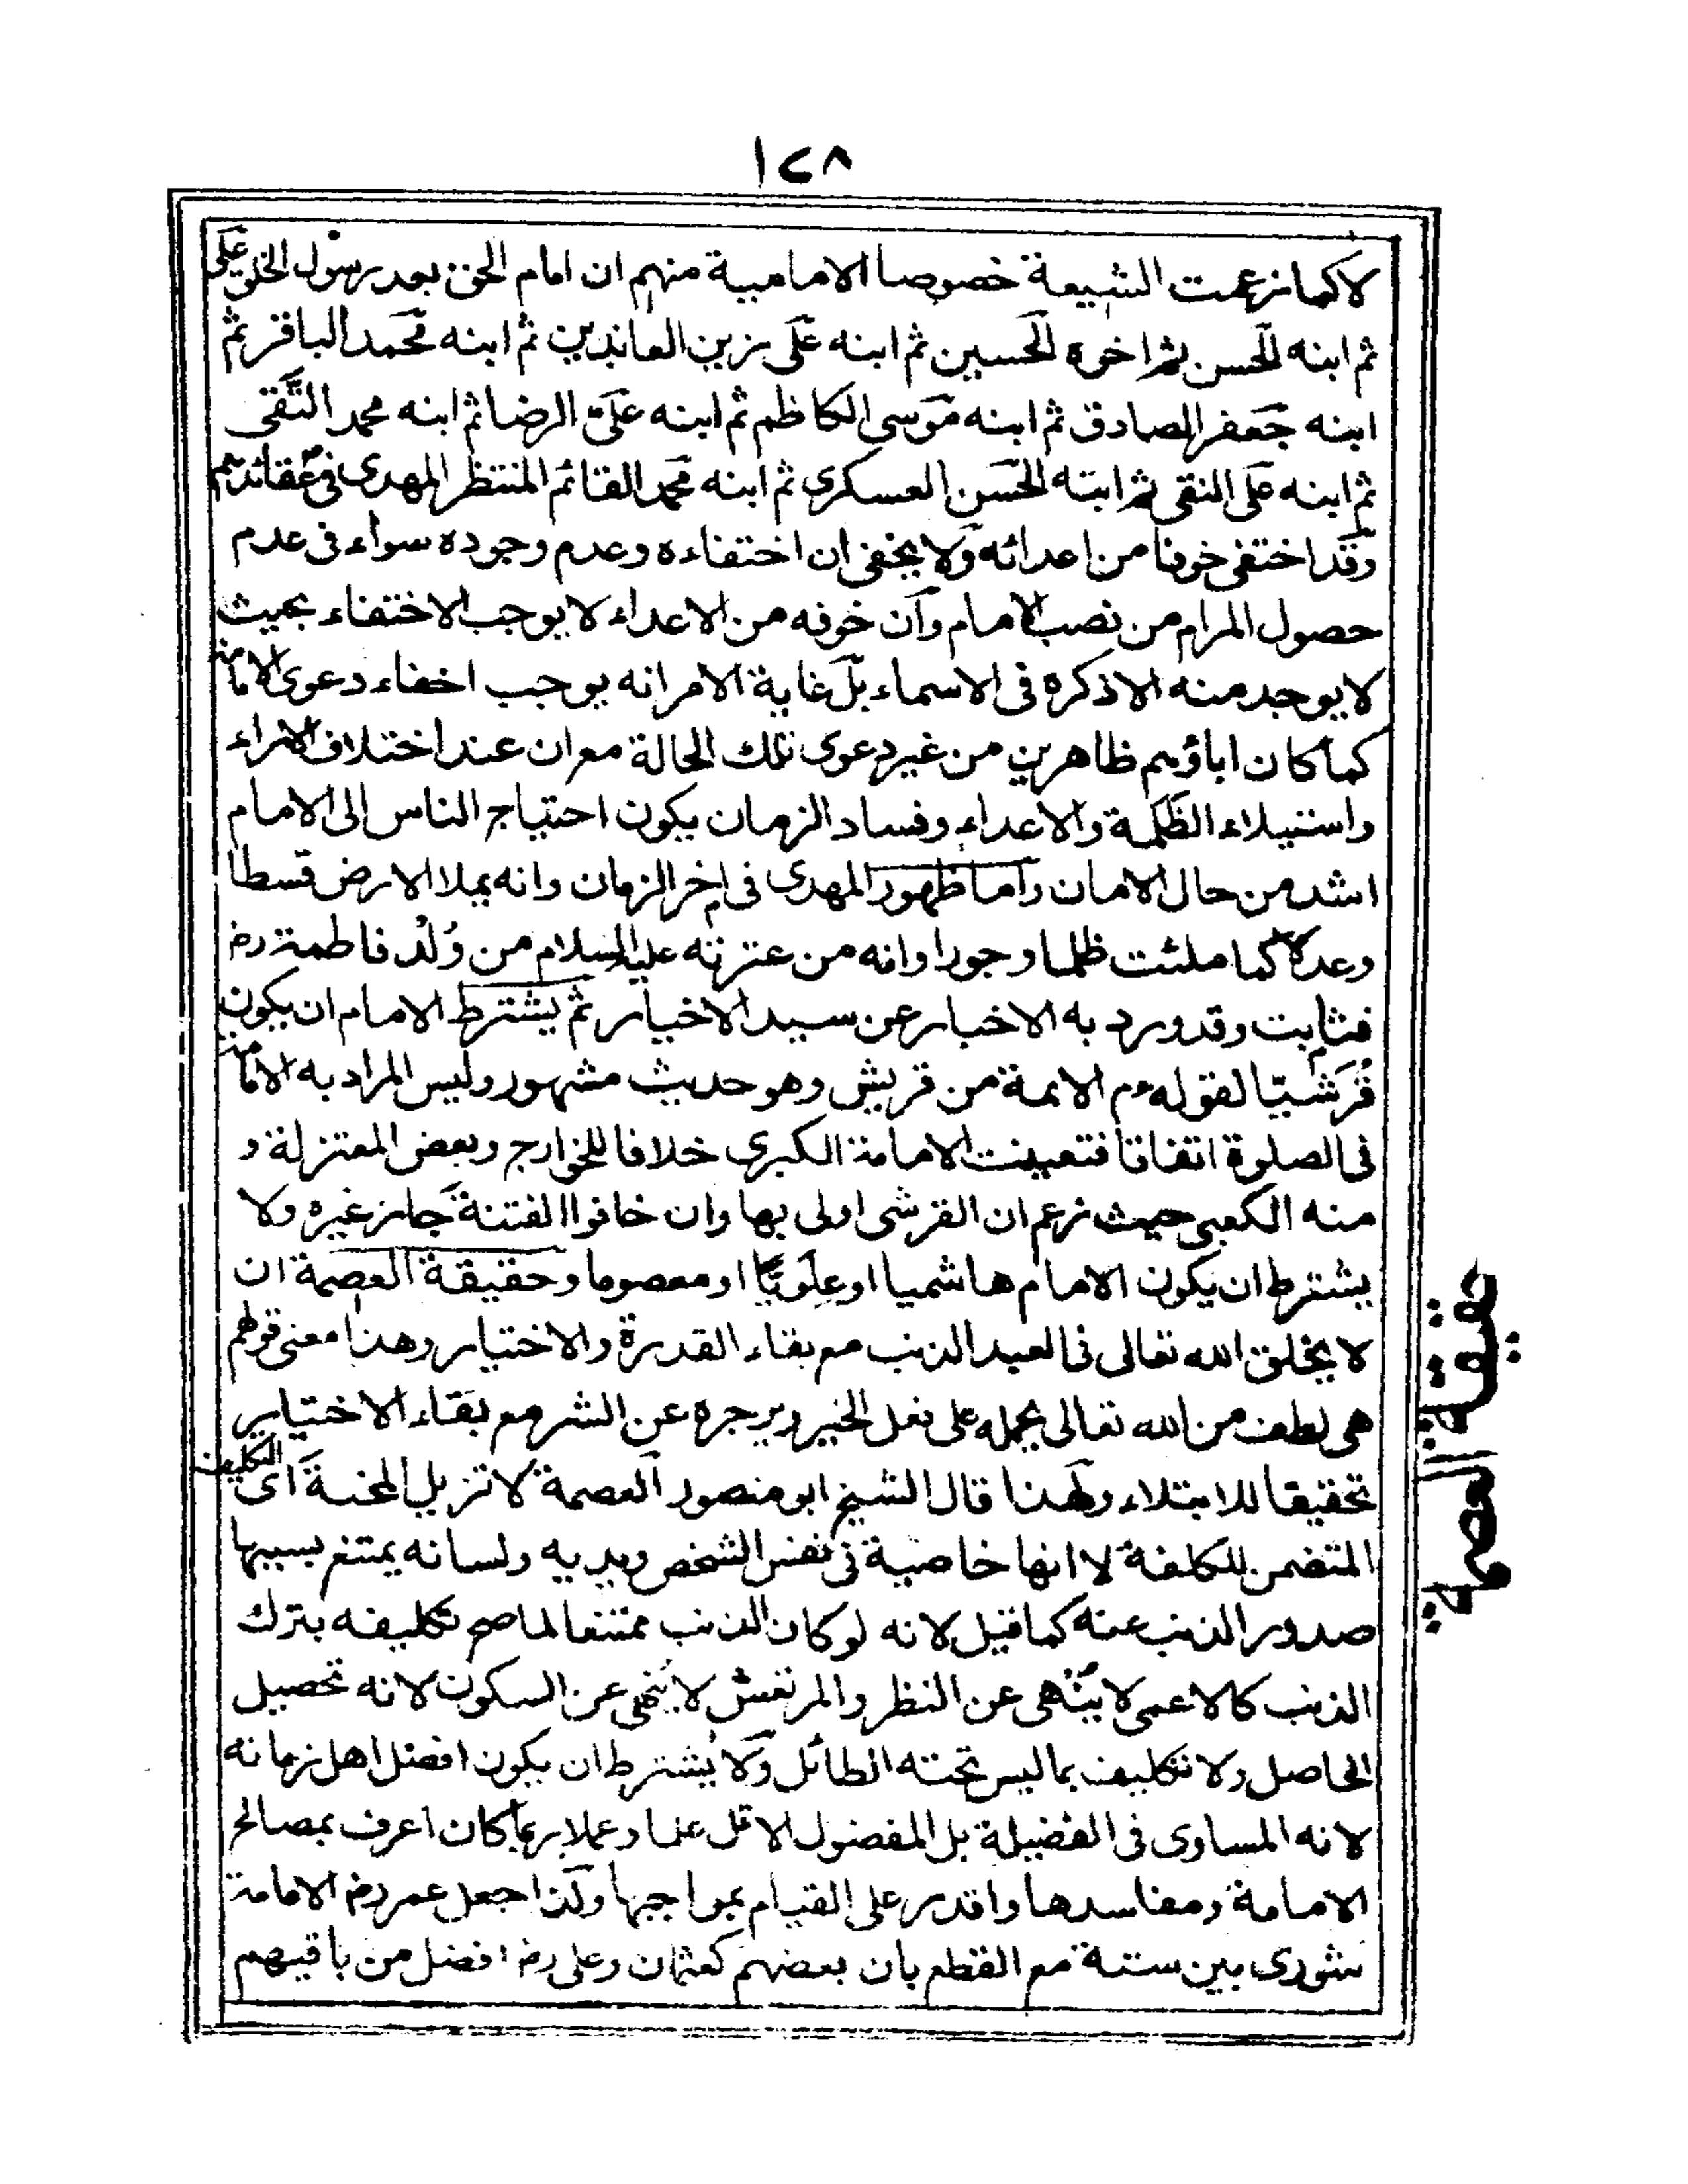 ١٢٨
لا كما زعمت الشيعة خصوصا الامامية منهم ان امام الحق بعد رسول الخلق على
ثم ابنه الحسن ثم اخوه الحسين ثم ابنه على زين العابدين ثم ابنه محمد الباقر ثم
ابنه جعفر الصادق ثم ابنه موسى الكاظم ثم ابنه على الرضا ثم ابنه محمد التَّقى
ثم ابنه على النقى ثم ابنه الحسن العسكرى ثم ابنه محمد القائم المنتظر المهدى فى عقائدهم
وقد اختفى خوفا من اعدائه ولا يخفى ان اختفاءه وعدم وجوده سواء فى عدم
حصول المرام من نصب الامام وان خوفه من الاعداء لا يوجب الاختفاء بحيث
لا يوجد منه الا ذكره فى الاسماء بل غاية الامر انه يوجب اخفاء دعوى الامامة
كما كان اباؤهم ظاهرين من غير دعوى تلك الحالة مع ان عند اختلاف الاراء
واستيلاء الظَلَمة والاعداء وفساد الزمان يكون احتياج الناس الى الامام
اشد من حال الامان واما ظهور المهدى فى اخر الزمان وانه يملا الارض قسطا
وعدلا كما ملئت ظلما وجورا وانه من عترته عليه السلام من وُلْد فاطمة رض
فثابت وقد ورد به الاخبار عن سيد الاخيار ثم يشترط الامام ان يكون
قُرَشيّا لقوله ءم الائمة من قريش وهو حديث مشهور وليس المراد به الامامة
فى الصلوة اتفاقا فتعينت الامامة الكبرى خلافا للخوارج وبعض المعتزلة و
منه الكعبى حيث زعم ان القرشى اولى بها وان خافوا الفتنة جاز غيره ولا
يشترط ان يكون الامام هاشميا او علَويًّا او معصوما وحقيقة العصمة ان
لا يخلق الله تعالى فى العبد الذنب مع بقاء القدرة والاختيار وهذا معنى قولهم
هى لطف من الله تعالى يحمله على فعل الخير ويزجره عن الشر مع بقاء الاختيار
تحقيقا للابتلاء ولهذا قال الشيخ ابو منصور العصمة لا تزيل المحنة اى التكليف
المتضمن للكلفة لا انها خاصية فى نفس الشخص ويديه ولسانه يمتنع بسببها
صدور الذنب عنه كما قيل لانه لو كان الذنب ممتنعا لما صح تكليفه بترك
الذنب كالاعمى لا يُنْهى عن النظر والمرتعش لا ينهى عن السكون لانه تحصيل
الحاصل ولا تكليف بما ليس تحته الطائل ولا يُشترط ان يكون افضل اهل زمانه
لانه المساوى فى الفضيلة بل المفضول الاقل علما وعملا ربما كان اعرف بمصالح
الامامة ومفاسدها واقدر على القيام بمواجبها ولذا جعل عمر رض الامامة
شورى بين ستة مع القطع بان بعضهم كعثمان وعلى رض افضل من باقيهم
حقيقة العصمة